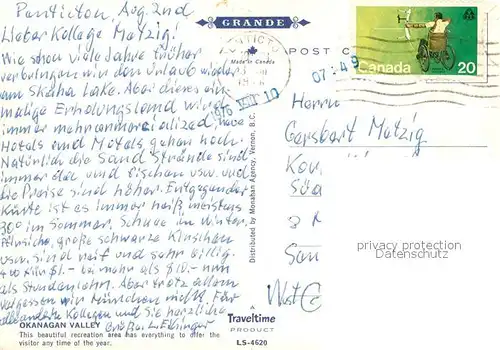 Penticton, Aug. 2nd
Lieber Kollege Matzig!
Wie schon viele Jahre früher
verbringen wir den Urlaub wieder
am Skaha Lake. Aber dieses ein-
malige Erholungsland wird
immer mehr comercialized, neue
Hotels und Motels gehen hoch.
Natürlich die Sand Strände sind
immer da und fischen usw. und
die Preise sind höher. Entgegen der
Küste ist es immer heiß, meistens
30° im Sommer. Schnee im Winter.
Pfirsiche, große schwarze Kirschen
usw. sind reif und sehr billig.
für $1.- bei mehr als $10.- nun
als Stundenlohn. Aber trotz allem
vergessen wir München nicht. Für
Kollegen und Sie herzliche
Grüße.
OKANAGAN VALLEY
This beautiful recreation area has everything to offer the
visitor any time of the year.
GRANDE
Made in Canada
POST C
Distributed by Monahan Agency, Vernon, B.C.
Traveltime
PRODUCT
LS-4620
Canada 20
07:49
1976 10
Herrn
Gersbart Matzig
privacy protection
Datenschutz
West